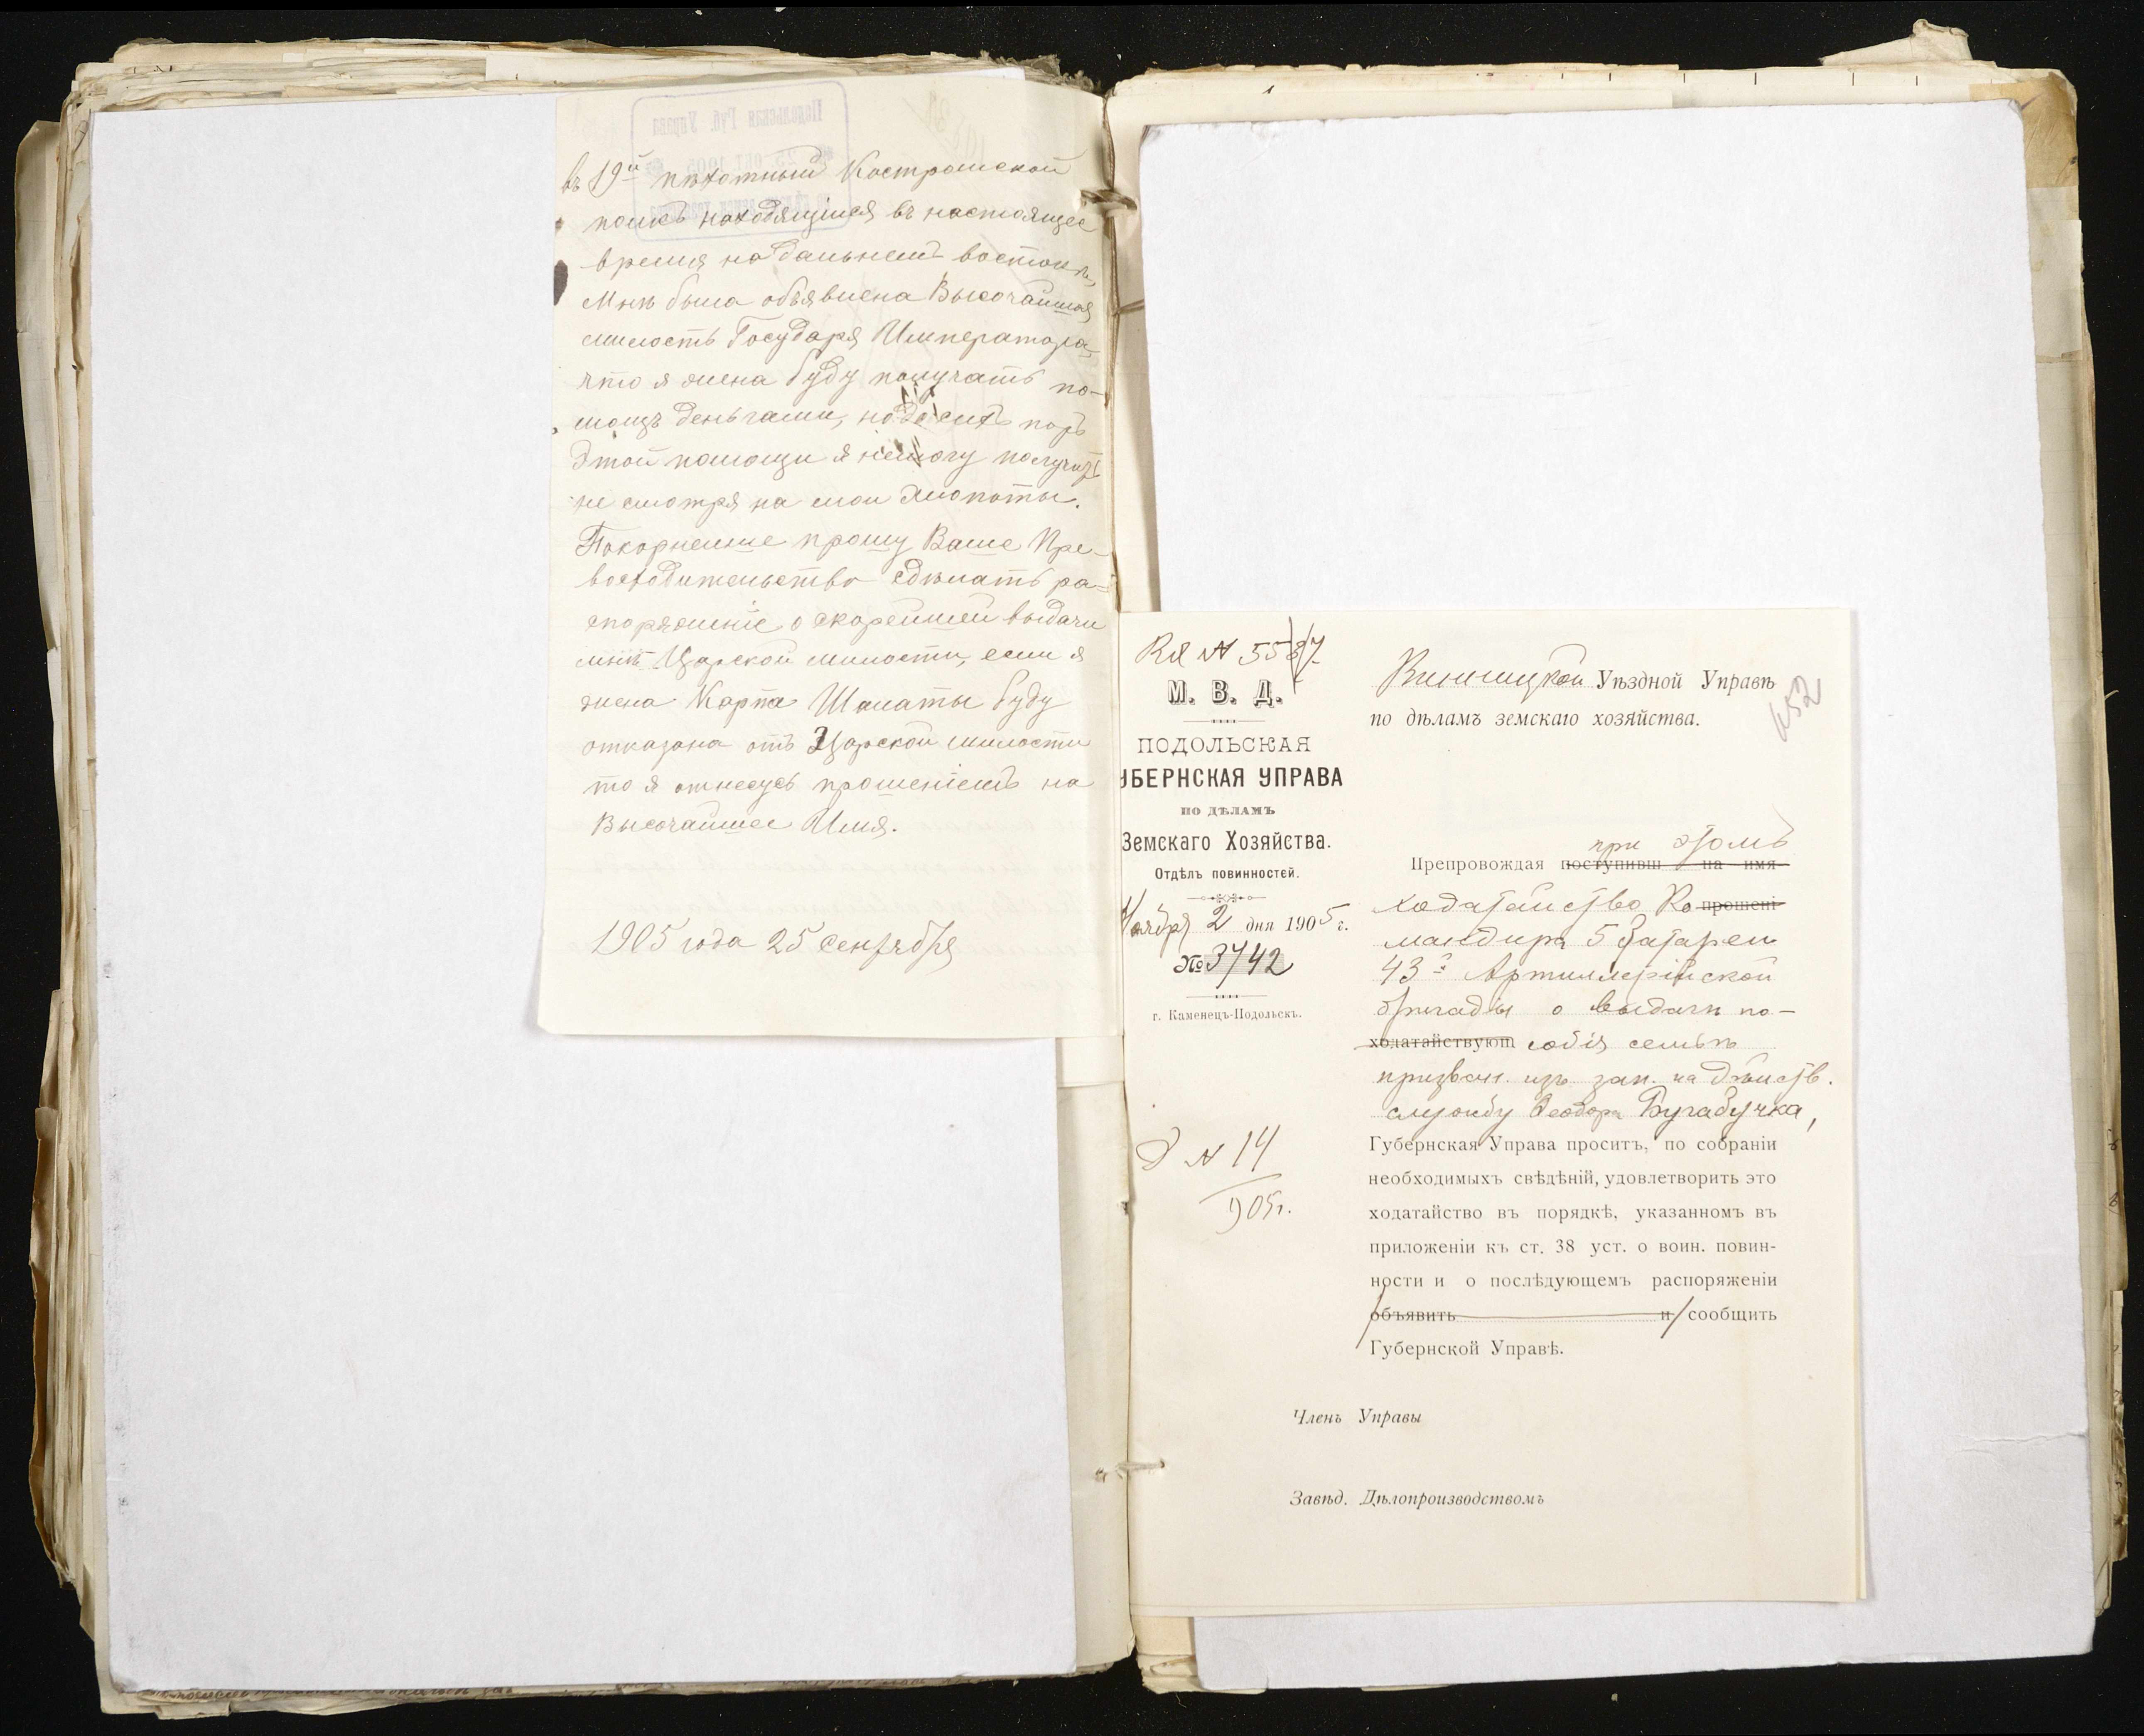 въ 19й пѣхотный Костромской
полкъ находящійся въ настоящее
время на дальнемъ востокѣ,
Мнѣ была объявлена Высочайшая
милость Государя Императора,
что я жена буду получать по-
мощъ деньгами, но до сихъ поръ
этой помощи я немогу получить
не смотря на мои хлопоты.
Покорнейше прошу Ваше Пре-
восходительство сдѣлать ра-
споряженіе о скорейшей выдачи
мнѣ Царской милости, если я
жена Карпа Шаматы буду
отказана отъ Царской милости
то я отнесусь прошеніемъ на
Высочайшее Имя.
1905 года 25 сентября
Вя № 5587
М. В. Д.
ПОДОЛЬСКАЯ
УБЕРНСКАЯ УПРАВА
ПО ДѢЛАМЪ
Земскаго Хозяйства.
Отдѣлъ повинностей.
Ноября 2 дня 1905 г.
№ 3742
г. Каменецъ-Подольскъ.
Д № 14
905г.
Винницкой Уѣздной Управѣ
по дѣламъ земскаго хозяйства.
652
при этомъ
Препровождая поступивш на имя
ходатайство Ко прошені
мандира 5 батареи
43й Артиллерійской
бригады о выдачи по-
ходатайствующ собія семьѣ
призван. изъ зап. на дѣйств.
службу Феодора Бугабучка,
Губернская Управа проситъ, по собраніи
необходимыхъ свѣдѣній, удовлетворить это
ходатайство въ порядкѣ, указанномъ въ
приложеніи къ ст. 38 уст. о воин. повин-
ности и о послѣдующемъ распоряженіи
объявить и сообщить
Губернской Управѣ.
Членъ Управы
Завѣд. Дѣлопроизводствомъ